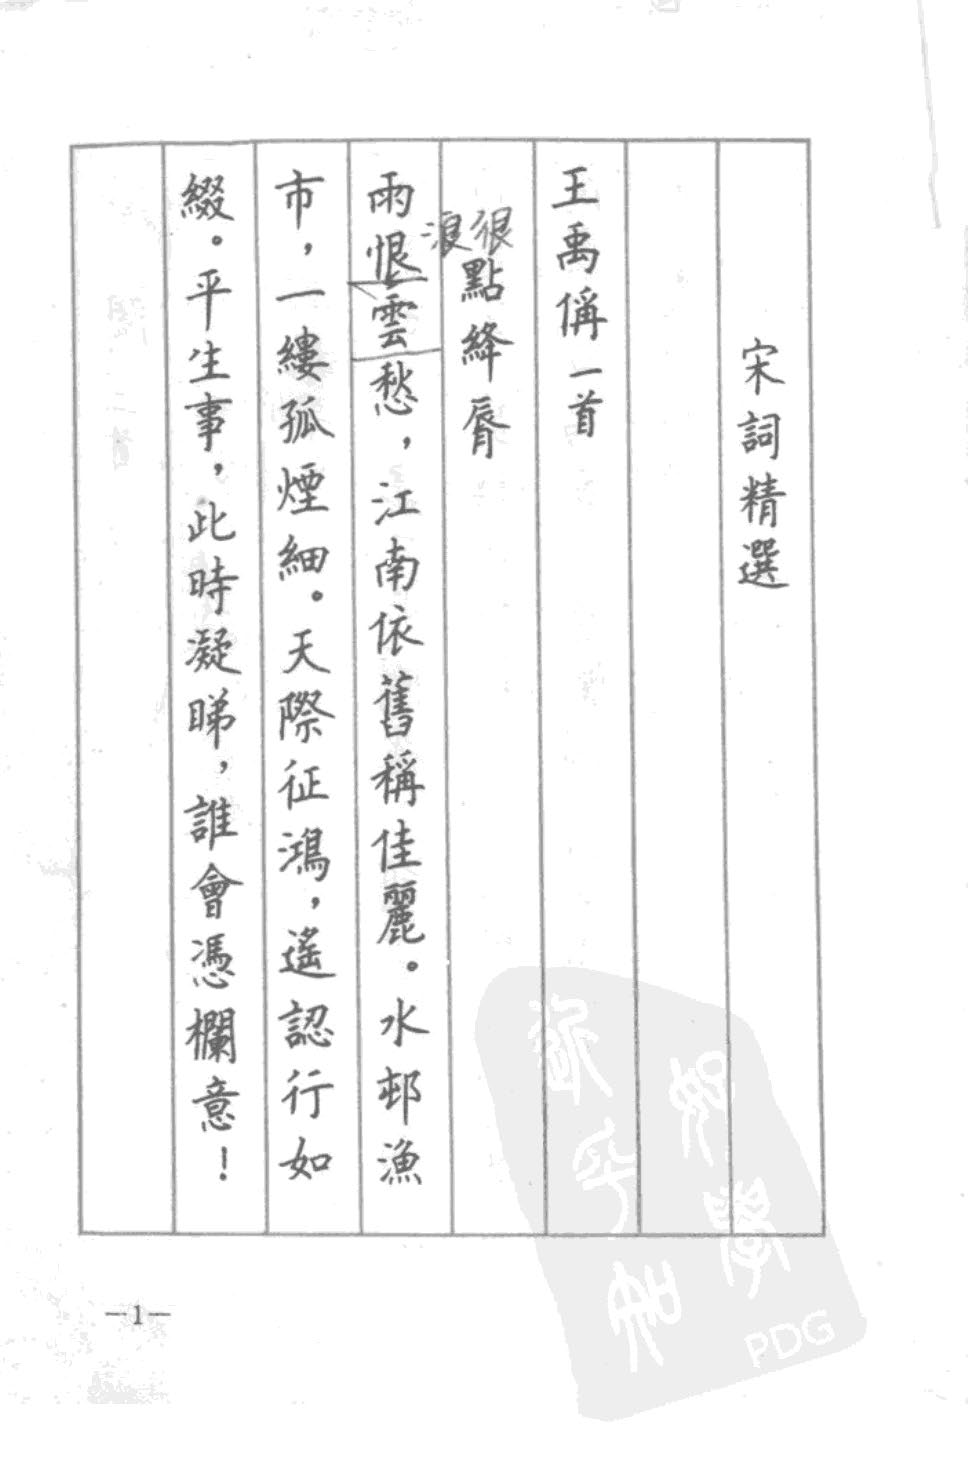 宋詞精選
王禹偁一首
很
浪
點絳脣
雨恨雲愁，江南依舊稱佳麗。水邨漁
市，一縷孤煙細。天際征鴻，遙認行如
綴。平生事，此時凝睇，誰會憑欄意！
—1—
PDG